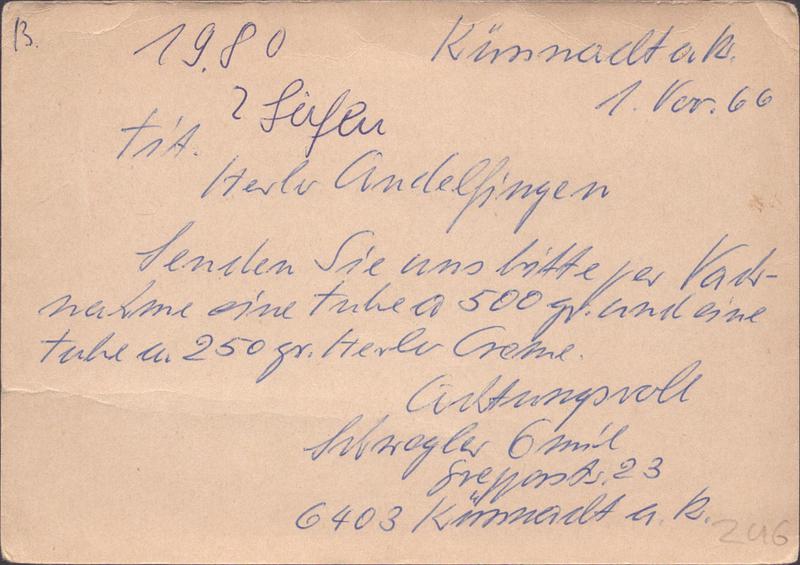 B.
19.80
Küssnacht a. R.
1. Nov. 66
2 Seifen
Tit.
Herlv Andelfingen
Senden Sie uns bitte per Nach-
nahme eine tube a 500 gr. und eine
tube a 250 gr. Herlv Creme.
Achtungsvoll
Schwegler Emil
23
6403 Küssnacht a. R.
246